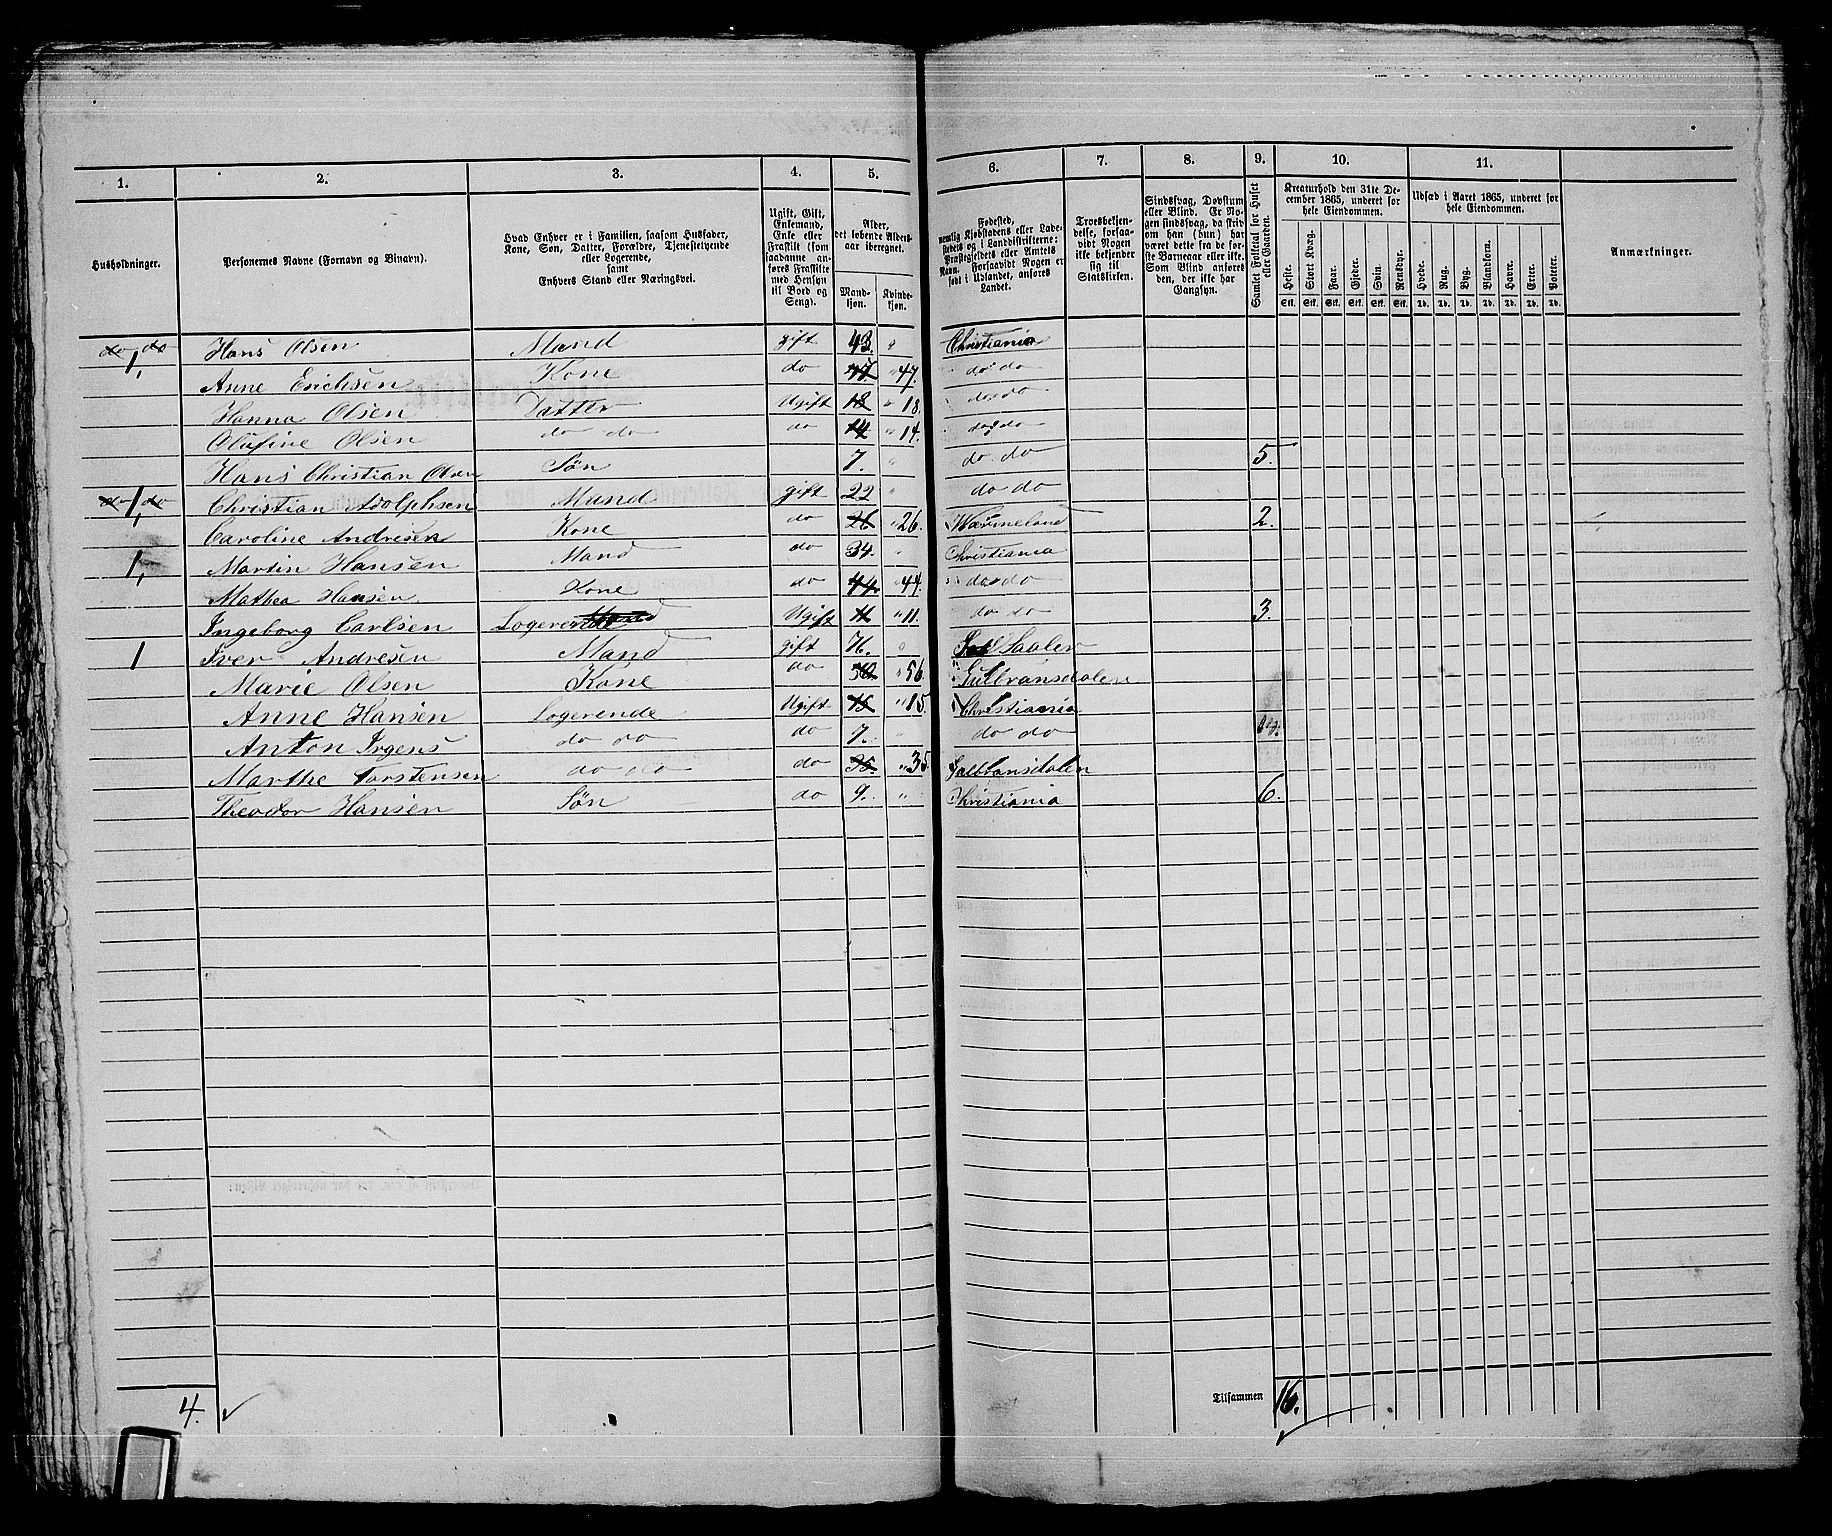 1. 2. 3. 4. 5. 6. 7. 8. 9. 10. 11.
Husholdninger.
Personernes Navne (Fornavn og Binavn).
Hvad Enhver er i Familien, saasom Husfader, Kone, Søn, Datter, Forældre, Tjenestetyende eller Logerende, samt Enhvers Stand eller Næringsvei.
Ugift, Gift, Enkemand, Enke eller Fraskilt (som saadanne anføres Fraskilte med Hensyn til Bord og Seng).
Alder, det løbende Alders-aar iberegnet.
Mandkjøn. Kvindekjøn.
Fødested, nemlig Kjøbstadens eller Ladestedets og i Landdistrikterne: Præstegjeldets eller Amtets Navn. Forsaavidt Nogen er født i Udlandet, anføres Landet.
Troesbekjendelse, forsaavidt Nogen ikke bekjender sig til Statskirken.
Sindssvag, Døvstum eller Blind. Er Nogen sindssvag, da skriv om han (hun) har været dette fra de første Barneaar eller ikke. Som Blind anføres den, der ikke har Gangsyn.
Samlet Folketal for Huset eller Gaarden.
Kreaturhold den 31te December 1865, underet for hele Eiendommen.
Heste. Stort Kvæg. Faar. Gjeder. Svin. Rensdyr.
Stk. Stk. Stk. Stk. Stk. Stk.
Udsæd i Aaret 1865, underet for hele Eiendommen.
Hvede. Rug. Byg. Blandkorn. Havre. Erter. Poteter.
Td. Td. Td. Td. Td. Td. Td.
Anmærkninger.
do do 1, Hans Olsen Mand gift 43. " Christiania
Anne Erichsen Kone do 47 " 47. do do
Hanna Olsen Datter Ugift 18 " 18. do do
Olufine Olsen do do do 14 " 14. do do
Hans Christian Olsen Søn 7. " do do 5.
do 1, do Christian Adolphsen Mand gift 22 " do do
Caroline Andresen Kone do 26 " 26. Wærmeland 2.
1, Martin Hansen Mand do 34. " Christiania
Mathea Hansen Kone do 44. " 44. do do
Ingeborg Carlsen Logerende Mand Ugift 11 " 11. do do 3.
1 Iver Andresen Mand gift 76. " Saaler
Marie Olsen Kone do " 56. Gulbransdalen
Anne Hansen Logerende Ugift 15 " 15. Christiania
Anton Irgens do do do 7. " do do
Marthe Torstensen do do do 35. " 35 Gulbransdalen
Theodor Hansen Søn do 9. " Christiania 6.
4. Tilsammen 16.